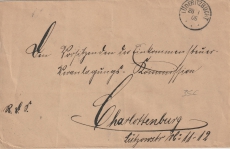 CHARLOTTENBURG
Den Vorsitzenden der Einkommensteuer-
Veranlagungs-Kommission
Charlottenburg
Lützowstr. 11-12